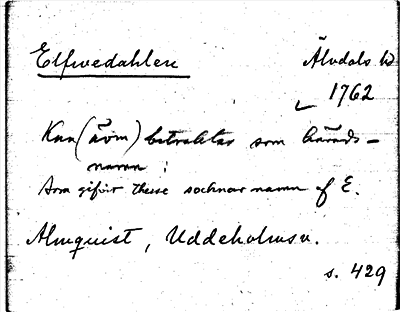 Elfwedahlen
Älvdals hd
1762
Kan (även) betraktas som härads-
namn :
som gifvir these socknar namn af E.
Almquist, Uddeholmsv.
s. 429